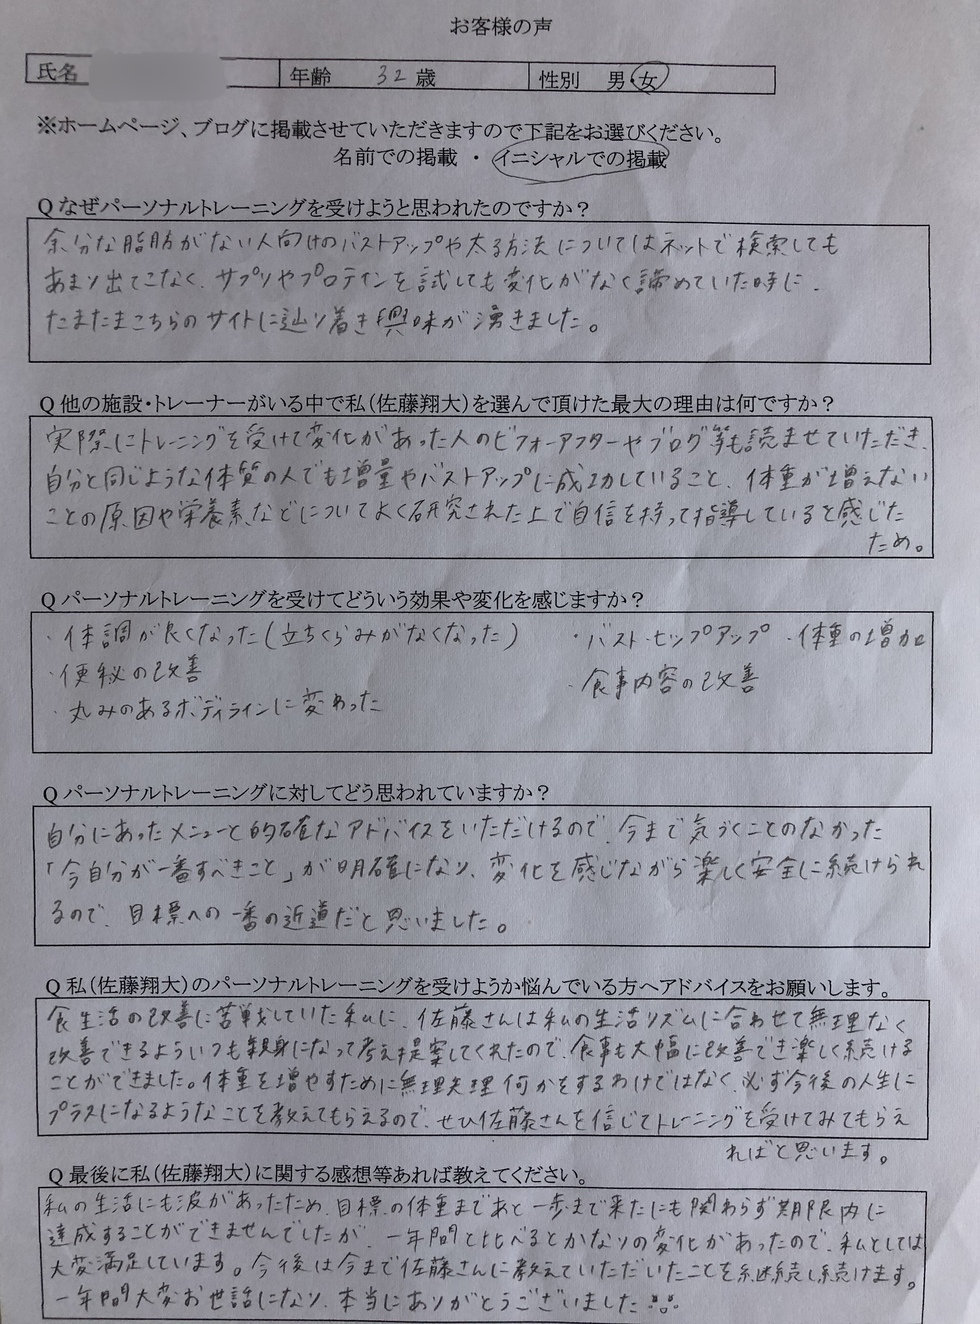 お客様の声
氏名 年齢 32歳 性別 男・女
※ホームページ、ブログに掲載させていただきますので下記をお選びください。
名前での掲載 ・ イニシャルでの掲載
Q なぜパーソナルトレーニングを受けようと思われたのですか？
余分な脂肪がない人向けのバストアップや太る方法についてはネットで検索しても
あまり出てこなく、サプリやプロテインを試しても変化がなく諦めていた時に、
たまたまこちらのサイトに辿り着き興味が湧きました。
Q 他の施設・トレーナーがいる中で私（佐藤翔大）を選んで頂けた最大の理由は何ですか？
実際にトレーニングを受けて変化があった人のビフォーアフターやブログ等も読ませていただき、
自分と同じような体質の人でも増量やバストアップに成功していること、体重が増えない
ことの原因や栄養素などについてよく研究された上で自信を持って指導していると感じた
ため。
Q パーソナルトレーニングを受けてどういう効果や変化を感じますか？
・体調が良くなった（立ちくらみがなくなった） ・バスト・ヒップアップ ・体重の増加
・便秘の改善 ・食事内容の改善
・丸みのあるボディラインに変わった
Q パーソナルトレーニングに対してどう思われていますか？
自分にあったメニューと的確なアドバイスをいただけるので、今まで気づくことのなかった
「今自分が一番すべきこと」が明確になり、変化を感じながら楽しく安全に続けられ
るので、目標への一番の近道だと思いました。
Q 私（佐藤翔大）のパーソナルトレーニングを受けようか悩んでいる方へアドバイスをお願いします。
食生活の改善に苦戦していた私に、佐藤さんは私の生活リズムに合わせて無理なく
改善できるよういつも親身になって考え提案してくれたので、食事も大幅に改善でき楽しく続ける
ことができました。体重を増やすために無理矢理何かをするわけではなく、必ず今後の人生に
プラスになるようなことを教えてもらえるので、ぜひ佐藤さんを信じてトレーニングを受けてみてもらえ
ればと思います。
Q 最後に私（佐藤翔大）に関する感想等あれば教えてください。
私の生活にも波があったため、目標の体重まであと一歩まで来たにも関わらず期限内に
達成することができませんでしたが、一年間と比べるとかなりの変化があったので、私としては
大変満足しています。今後は今まで佐藤さんに教えていただいたことを継続し続けます。
一年間大変お世話になり、本当にありがとうございました